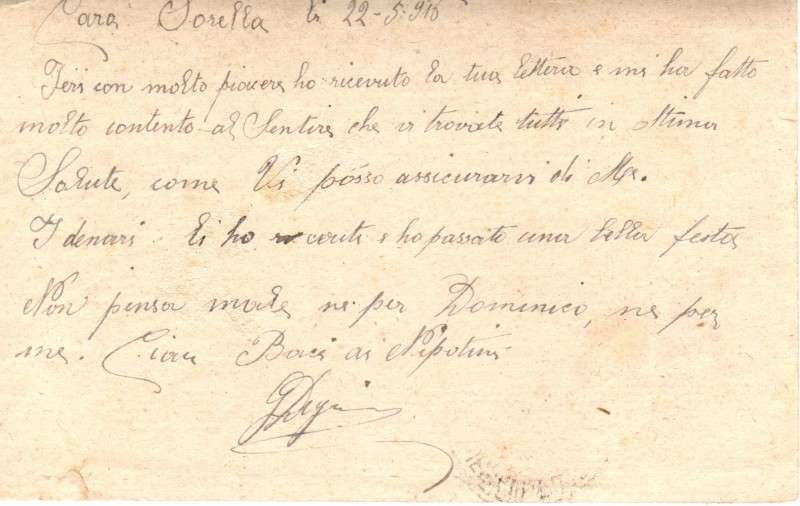 Cara Sorella li 22-5-916
Ieri con molto piacere ho ricevuto la tua lettera e mi ha fatto
molto contento al Sentire che vi trovate tutti in ottima
Salute, come Vi posso assicurarvi di Me.
I denari li ho ricevuti e ho passato una bella festa
Non pensa male ne per Domenico, ne per
me. Ciau Baci ai Nipotini